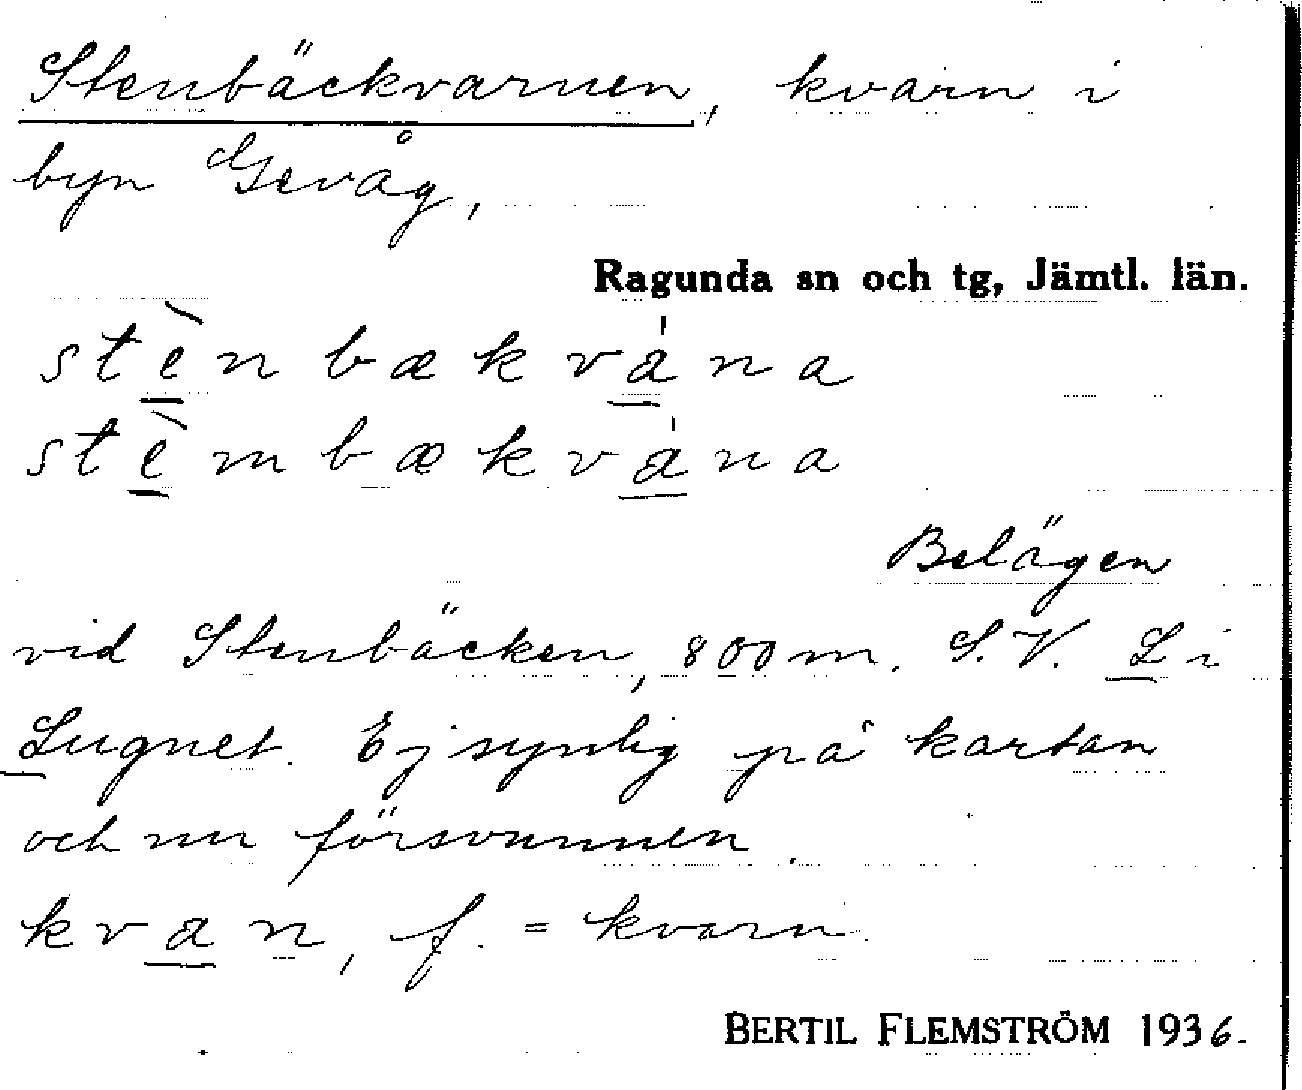 Stenbäckvarnen, kvarn i
byn Gevåg,
Ragunda sn och tg, Jämtl. län.
stèn bækvána
stèm bækvána
Belägen
vid Stenbäcken, 800 m. S.V. L i
Lugnet. Ej synlig på kartan
och nu försvunnen.
kvan, f. = kvarn.
BERTIL FLEMSTRÖM 1936.